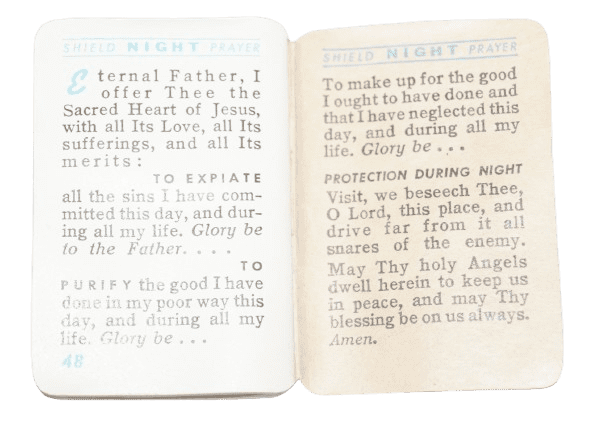 SHIELD NIGHT PRAYER
Eternal Father, I
offer Thee the
Sacred Heart of Jesus,
with all Its Love, all Its
sufferings, and all Its
merits:
TO EXPIATE
all the sins I have com-
mitted this day, and dur-
ing all my life. Glory be
to the Father. . . .
TO
PURIFY the good I have
done in my poor way this
day, and during all my
life. Glory be . . .
48
SHIELD NIGHT PRAYER
To make up for the good
I ought to have done and
that I have neglected this
day, and during all my
life. Glory be . . .
PROTECTION DURING NIGHT
Visit, we beseech Thee,
O Lord, this place, and
drive far from it all
snares of the enemy.
May Thy holy Angels
dwell herein to keep us
in peace, and may Thy
blessing be on us always.
Amen.